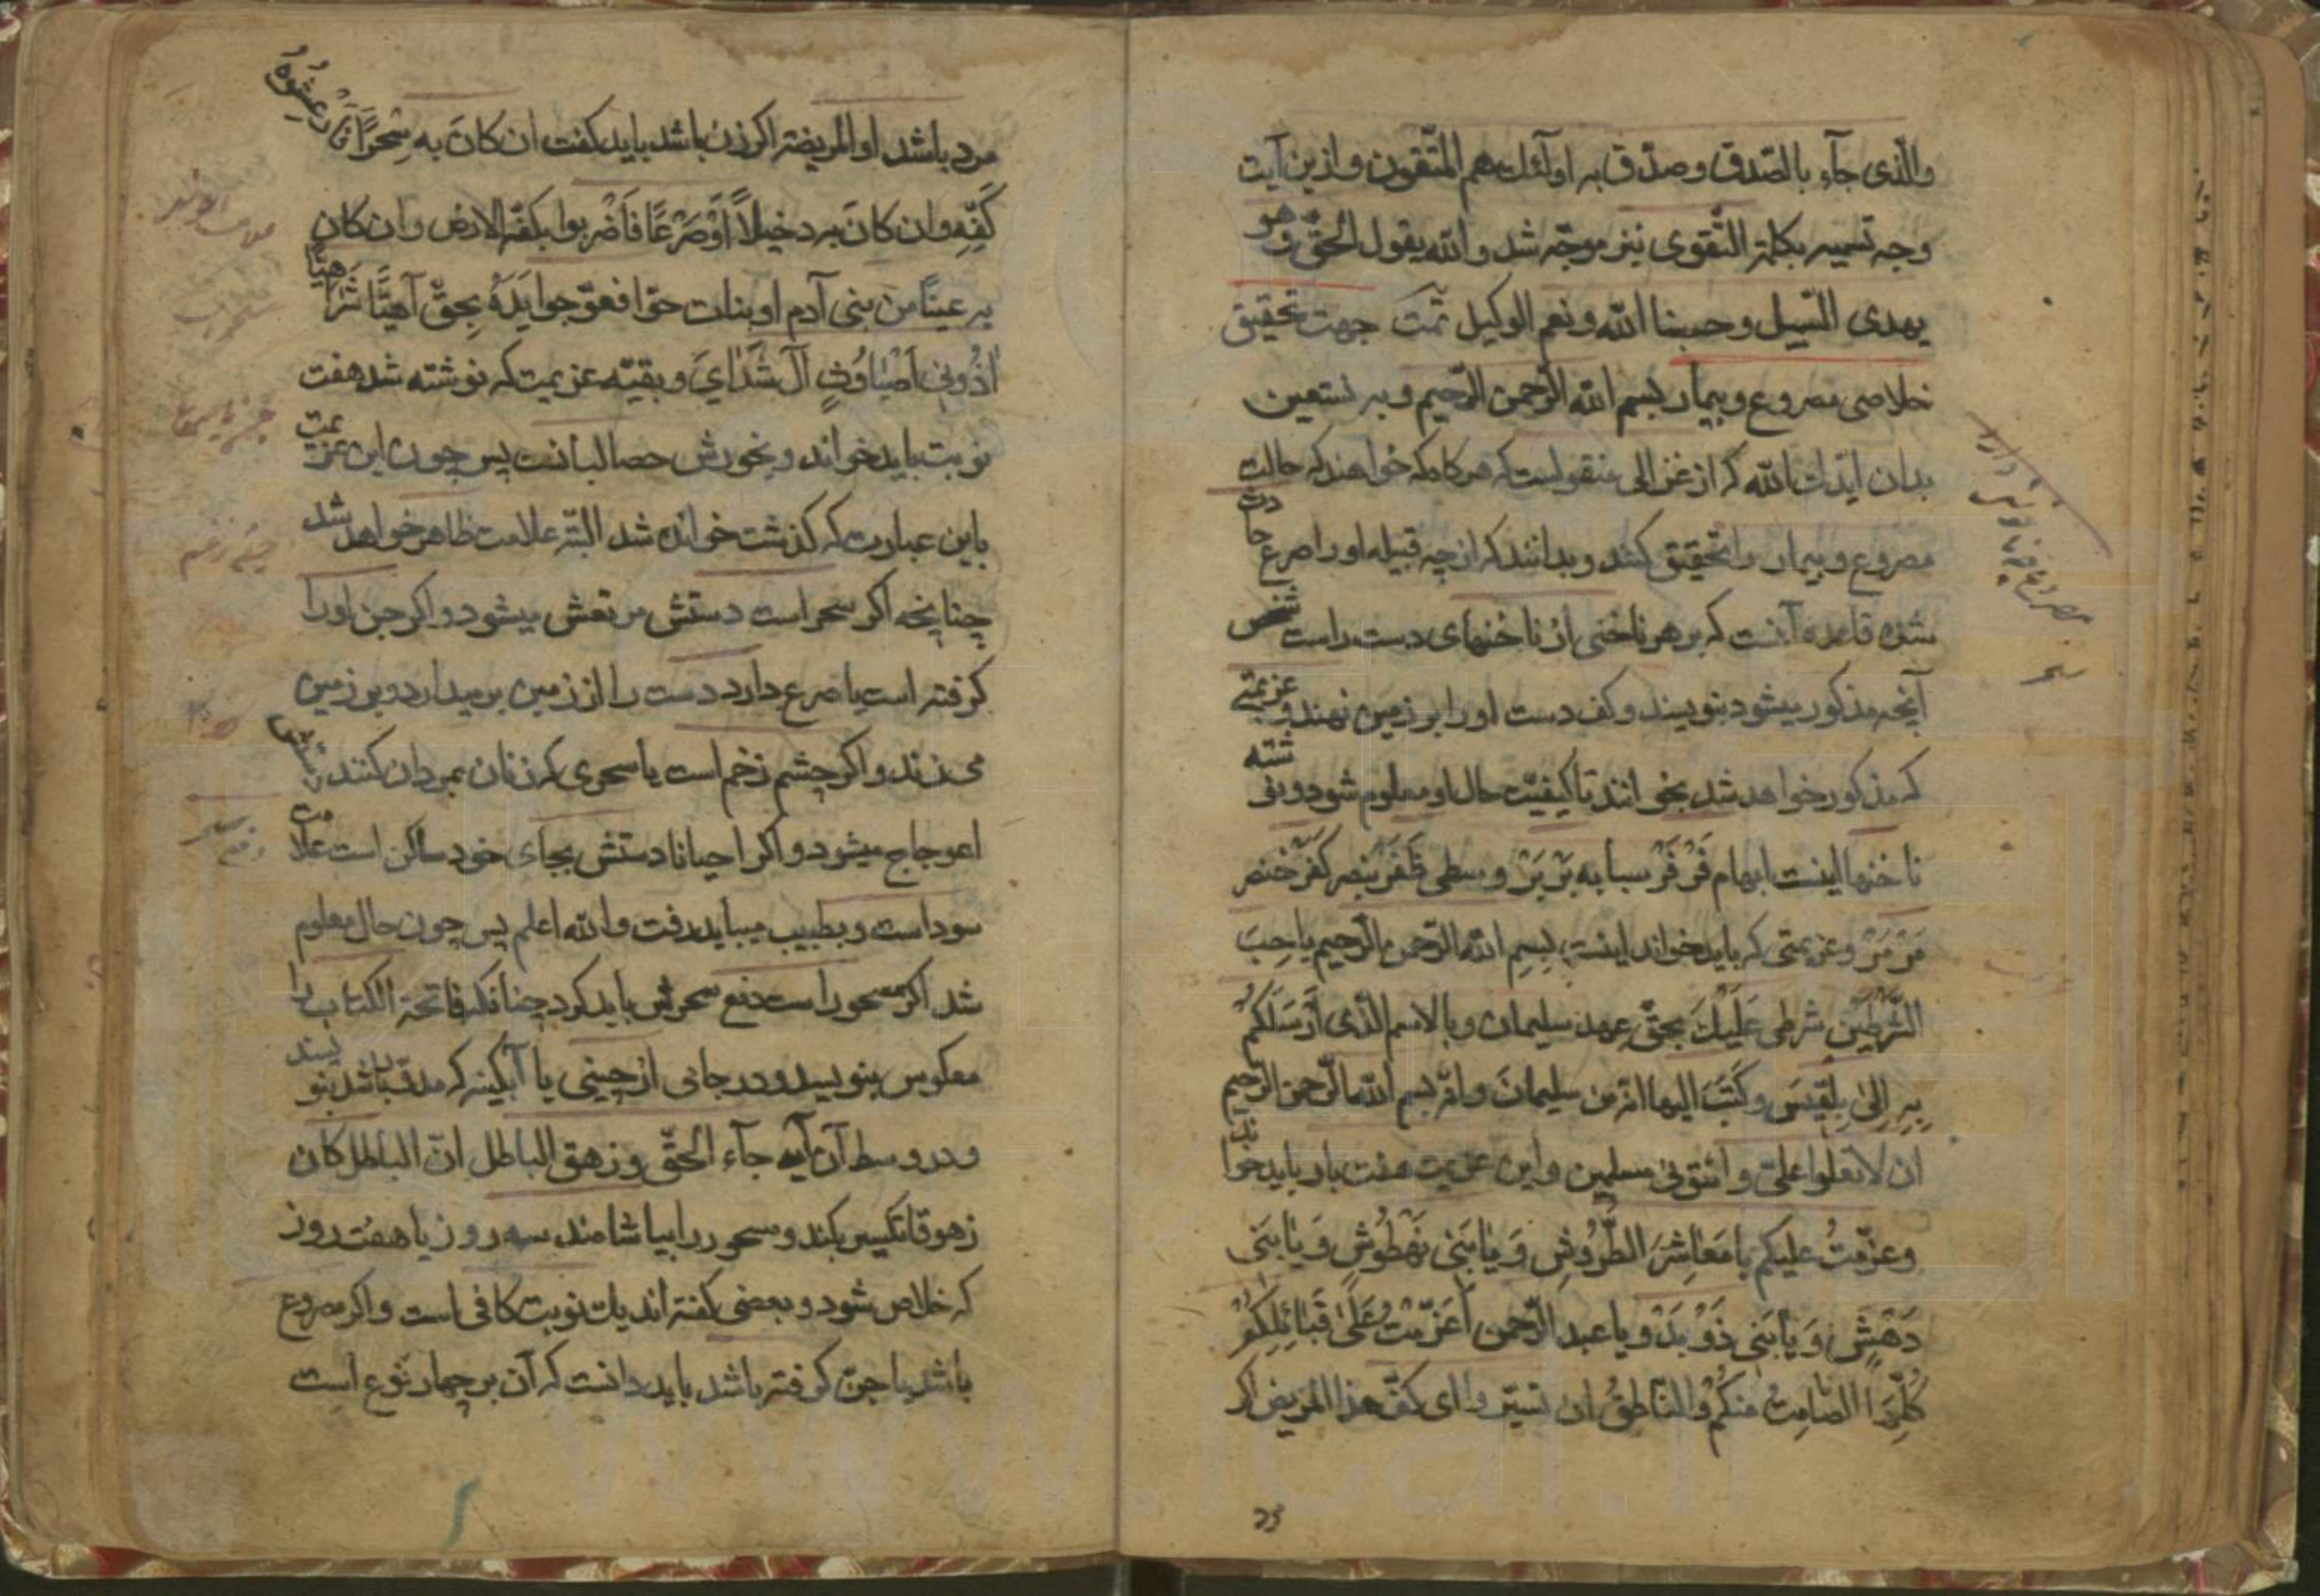 والّذی جآء بالصّدق و صدّق به اولٓئک هم المتّقون و ازین آیت
وجه تسمیه بکلمة التّقوی نیز موجّه شد والله یقول الحقّ و هو
یهدی السّبیل و حسبنا الله و نعم الوکیل تمّت جهت تحقیق
خلاصی مصروع و بیمار بسم الله الرّحمن الرّحیم و به نستعین
بدان ایّدک الله که از غزالی منقولست که هرکاه که خواهند که حالت
مصروع و بیمار را تحقیق کنند و بدانند که از چه قبیله او را صرع حادث
شده قاعده آنست که بر هر ناخنی از ناخنهای دست راست شخص
آنچه مذکور میشود بنویسند و کف دست او را بر زمین نهند و عزیمتی
که مذکور خواهد شد بخوانند تا کیفیّت حال او معلوم شود و نوشته
ناخنها اینست ابهام فَرْفَرْ سبابه بَرْبَرْ وسطی ظَفَر بنصر کَفَر خنصر
مَرْمَرْ و عزیمتی که باید خواند اینست بِسمِ الله الرّحمن الرّحیم یا صحبَ
الشّرطین شرطی عَلَیْکَ بحقّ عهد سلیمان و بالاسم الّذی اَرْسَلَکُمْ
بِهِ اِلیٰ بِلْقیسَ و کَتَبَ الیها انّه من سلیمانَ و انّه بسم الله الرّحمن الرّحیم
ان لا تعلوا علیّ و ائتونی مسلمین و این عزیمت هفت بار باید خواند
وعزّمتُ علیکم یا مَعاشِرَ الطُّرُوشِ وَ یا بَنی نَهْطُوشٍ وَ یا بَنی
دَهْشٍ وَ یا بَنی ذَوْبَدْ و یا عبد الرّحمن اَعَزّمْتُ عَلیٰ قَبائِلِکُمْ
الصّامِتُ مِنْکُمْ والنّاطِقُ ان کفّ هذا المریض اکر
25
مرد باشد او المریضة اکر زن باشد باید کفت ان کانَ به سِحْراً فَارْعِشُوهُ
کَفِّهِ و ان کانَ به دخیلاً اَوْ صَرْعًا فَاضْربوا بکفّه الارض و ان کان
به عیناً من بنی آدم او بنات حوّا فعوّجوا یَدَهُ بِحقّ آهیّاً شَراهیّاً
اَذُونی اَصْباوُثٍ آل شَدایَ و بقیّه عزیمت که نوشته شد هفت
نوبت باید خواند و بخورش حصالبانست پس چون این عزیمت
باین عبارت که کذشت خوانده شد البتّه علامت ظاهر خواهد شد
چنانچه اکر سحر است دستش مرتعش میشود و اکر جن او را
کرفته است یا صرع دارد دست را از زمین برمیدارد و بر زمین
می‌زند و اکر چشم زخم است یا سحری که زنان بمردان کنند
اعوجاج میشود و اکر احیانا دستش بجای خود ساکن است علامت
سوداست و بطبیب میباید رفت والله اعلم پس چون حال معلوم
شد اکر مسحور است دفع سحرش باید کرد چنانکه فاتحة الکتاب را
معکوس بنویسد و در جامی از چینی یا آبکینه که باشد بنویسند
و در وسط آن آیه جآء الحقّ و زهق الباطل انّ الباطل کان
زهوقا تکسیر بکند و مسحور را بیاشامند سه روز یا هفت روز
که خلاص شود و بعضی کفته اند یک نوبت کافی است و اکر مصروع
باشد یا جنّ کرفته باشد باید دانست که آن بر چهار نوع است